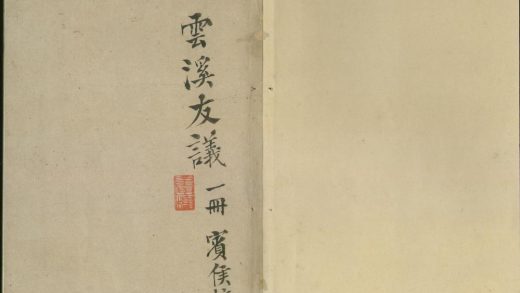 雲溪友議
一冊 賓侯